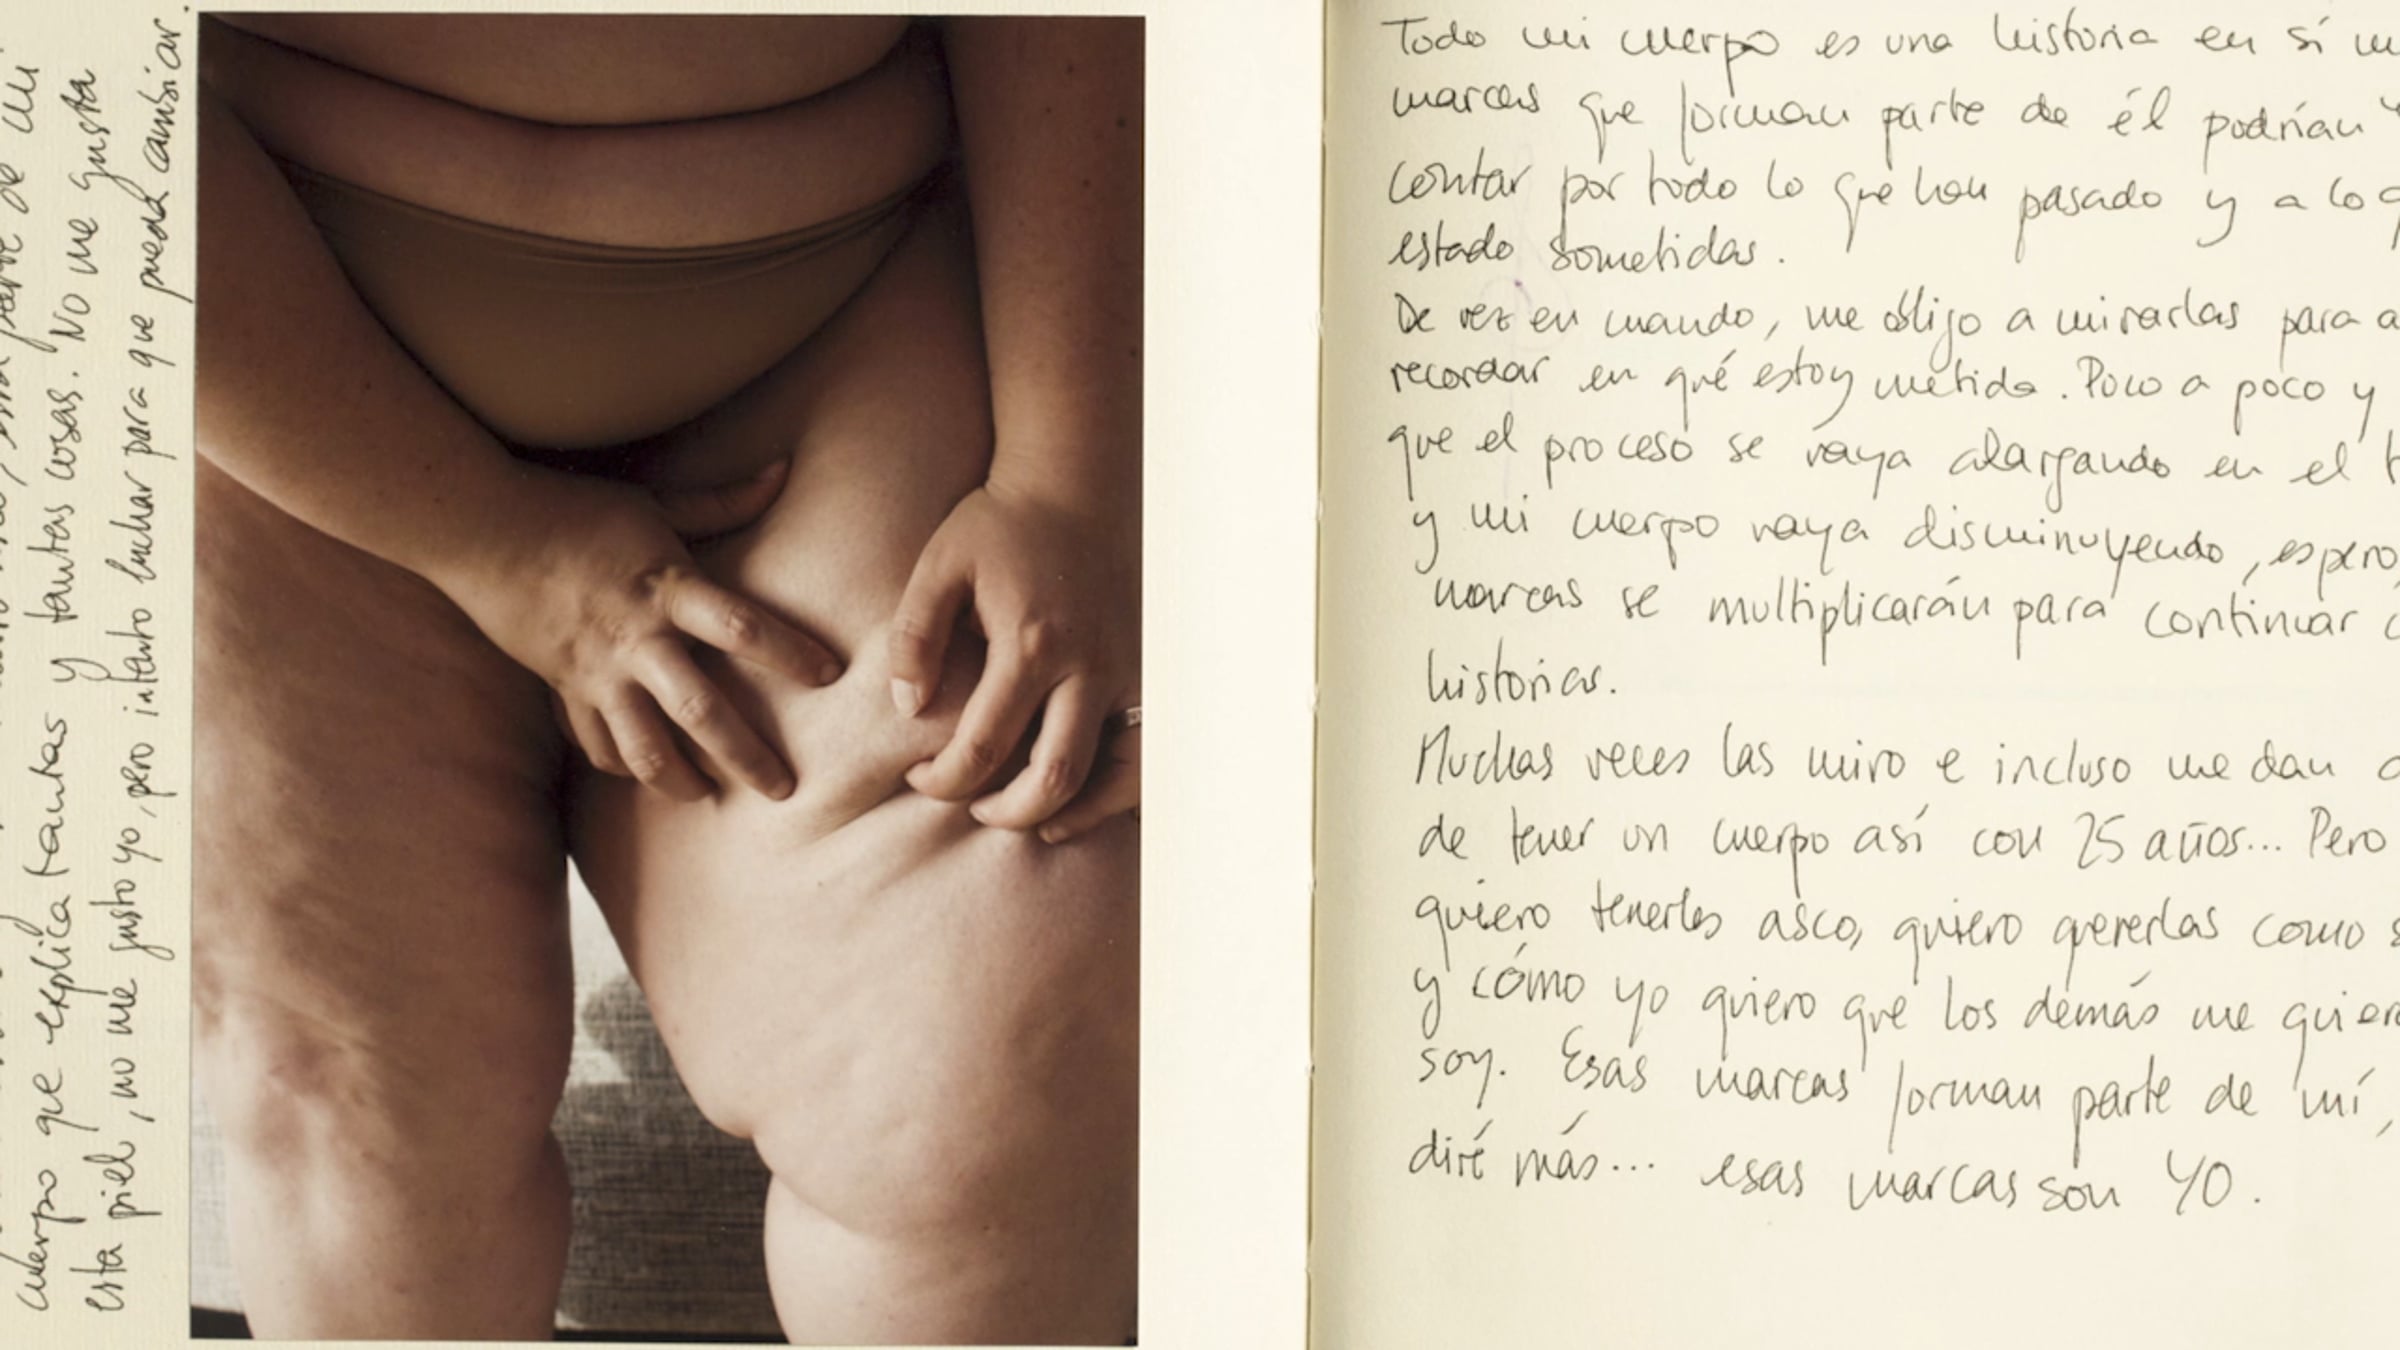 cuerpo que explica tantas y tantas cosas. No me gusta
esta piel, no me gusto yo, pero intento luchar para que pueda cambiar.
Todo mi cuerpo es una historia en sí
marcas que forman parte de él podrían
contar por todo lo que han pasado y a lo
estado sometidas.
De vez en cuando, me obligo a mirarlas para
recordar en qué estoy metida. Poco a poco y
que el proceso se vaya alargando en el
y mi cuerpo vaya disminuyendo, espero,
marcas se multiplicarán para continuar
historias.
Muchas veces las miro e incluso me dan
de tener un cuerpo así con 25 años... Pero
quiero tenerles asco, quiero quererlas como
y cómo yo quiero que los demás me
soy. Esas marcas forman parte de mí,
diré más... esas marcas son YO.